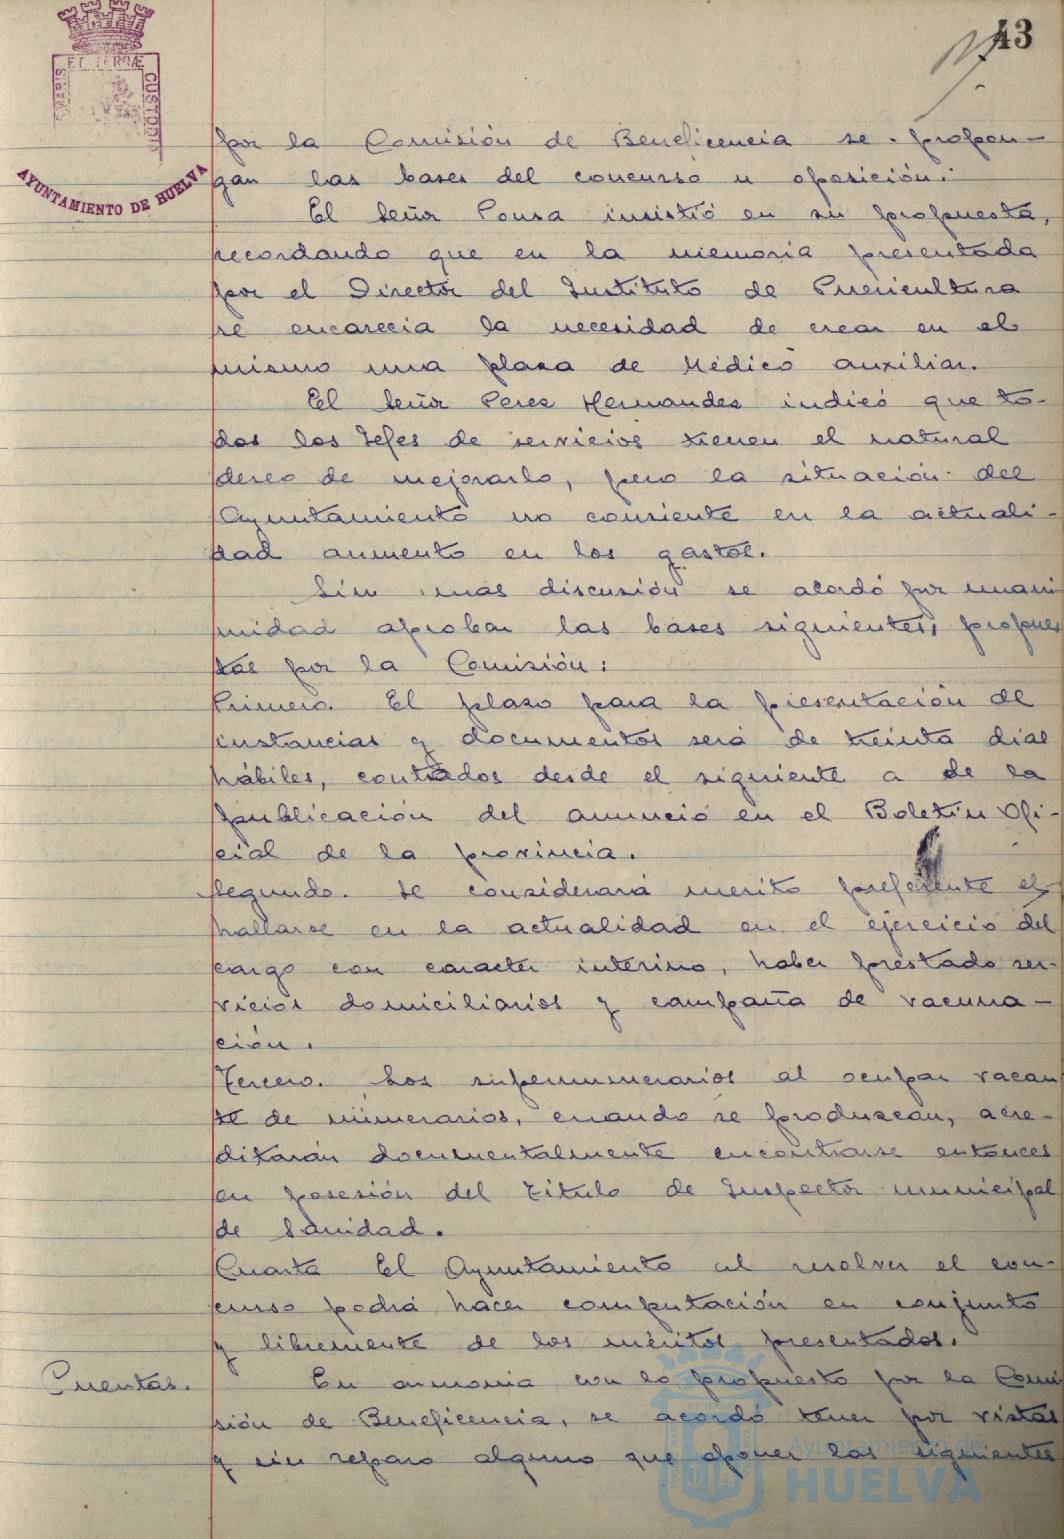 43
PORTUS MARIS ET TERRÆ CUSTODIA
AYUNTAMIENTO DE HUELVA
por la Comisión de Beneficencia se propon-
gan las bases del concurso u oposición.
El Señor Ponza insistió en su propuesta,
recordando que en la memoria presentada
por el Director del Instituto de Puericultura
se encarecia la necesidad de crear en el
mismo una plaza de Médico auxiliar.
El Señor Perez Hernandez indicó que to-
dos los Jefes de servicios tienen el natural
deseo de mejorarlo, pero la situación del
Ayuntamiento no consiente en la actuali-
dad aumento en los gastos.
Sin mas discusión se acordó por unani
midad aprobar las bases siguientes, propues
tas por la Comisión:
Primero. El plazo para la presentación de
instancias y documentos será de treinta dias
hábiles, contados desde el siguiente a de la
publicación del anuncio en el Boletín Ofi-
cial de la provincia.
Segundo. Se considerará merito preferente el
hallarse en la actualidad en el ejercicio del
cargo con caracter interino, haber prestado ser-
vicios domiciliarios y campaña de vacuna-
ción.
Tercero. Los supernumerarios al ocupar vacan
te de númerarios, cuando se produzcan, acre-
ditarán documentalmente encontrarse entonces
en posesión del titulo de Inspector municipal
de Sanidad.
Cuarta El Ayuntamiento al resolver el con-
curso podrá hacer computación en conjunto
y libremente de los méritos presentados.
Cuentas. En armonia con lo propuesto por la Comi
sión de Beneficencia, se acordó tener por vistas
y sin reparo alguno que oponer las siguientes
Ayuntamiento de
HUELVA